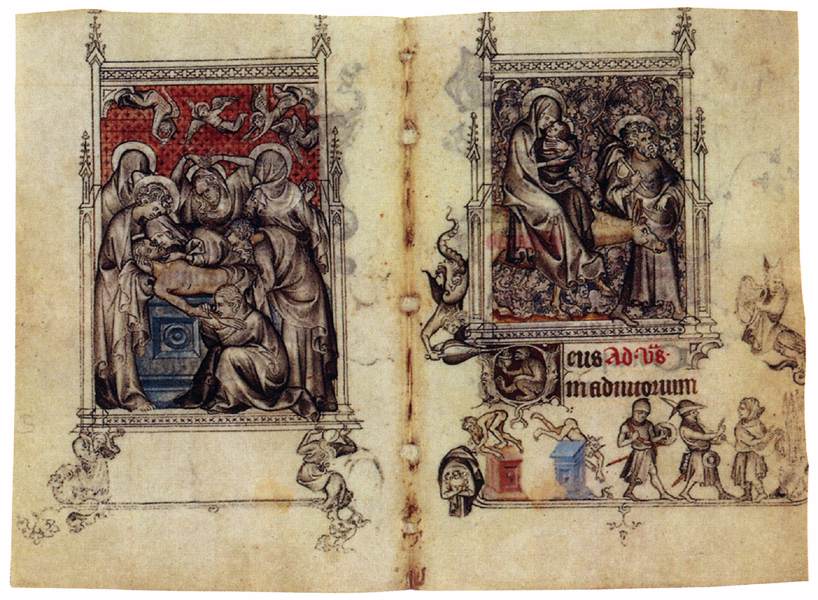 Deus Ad. vs̄.
in adiutorium